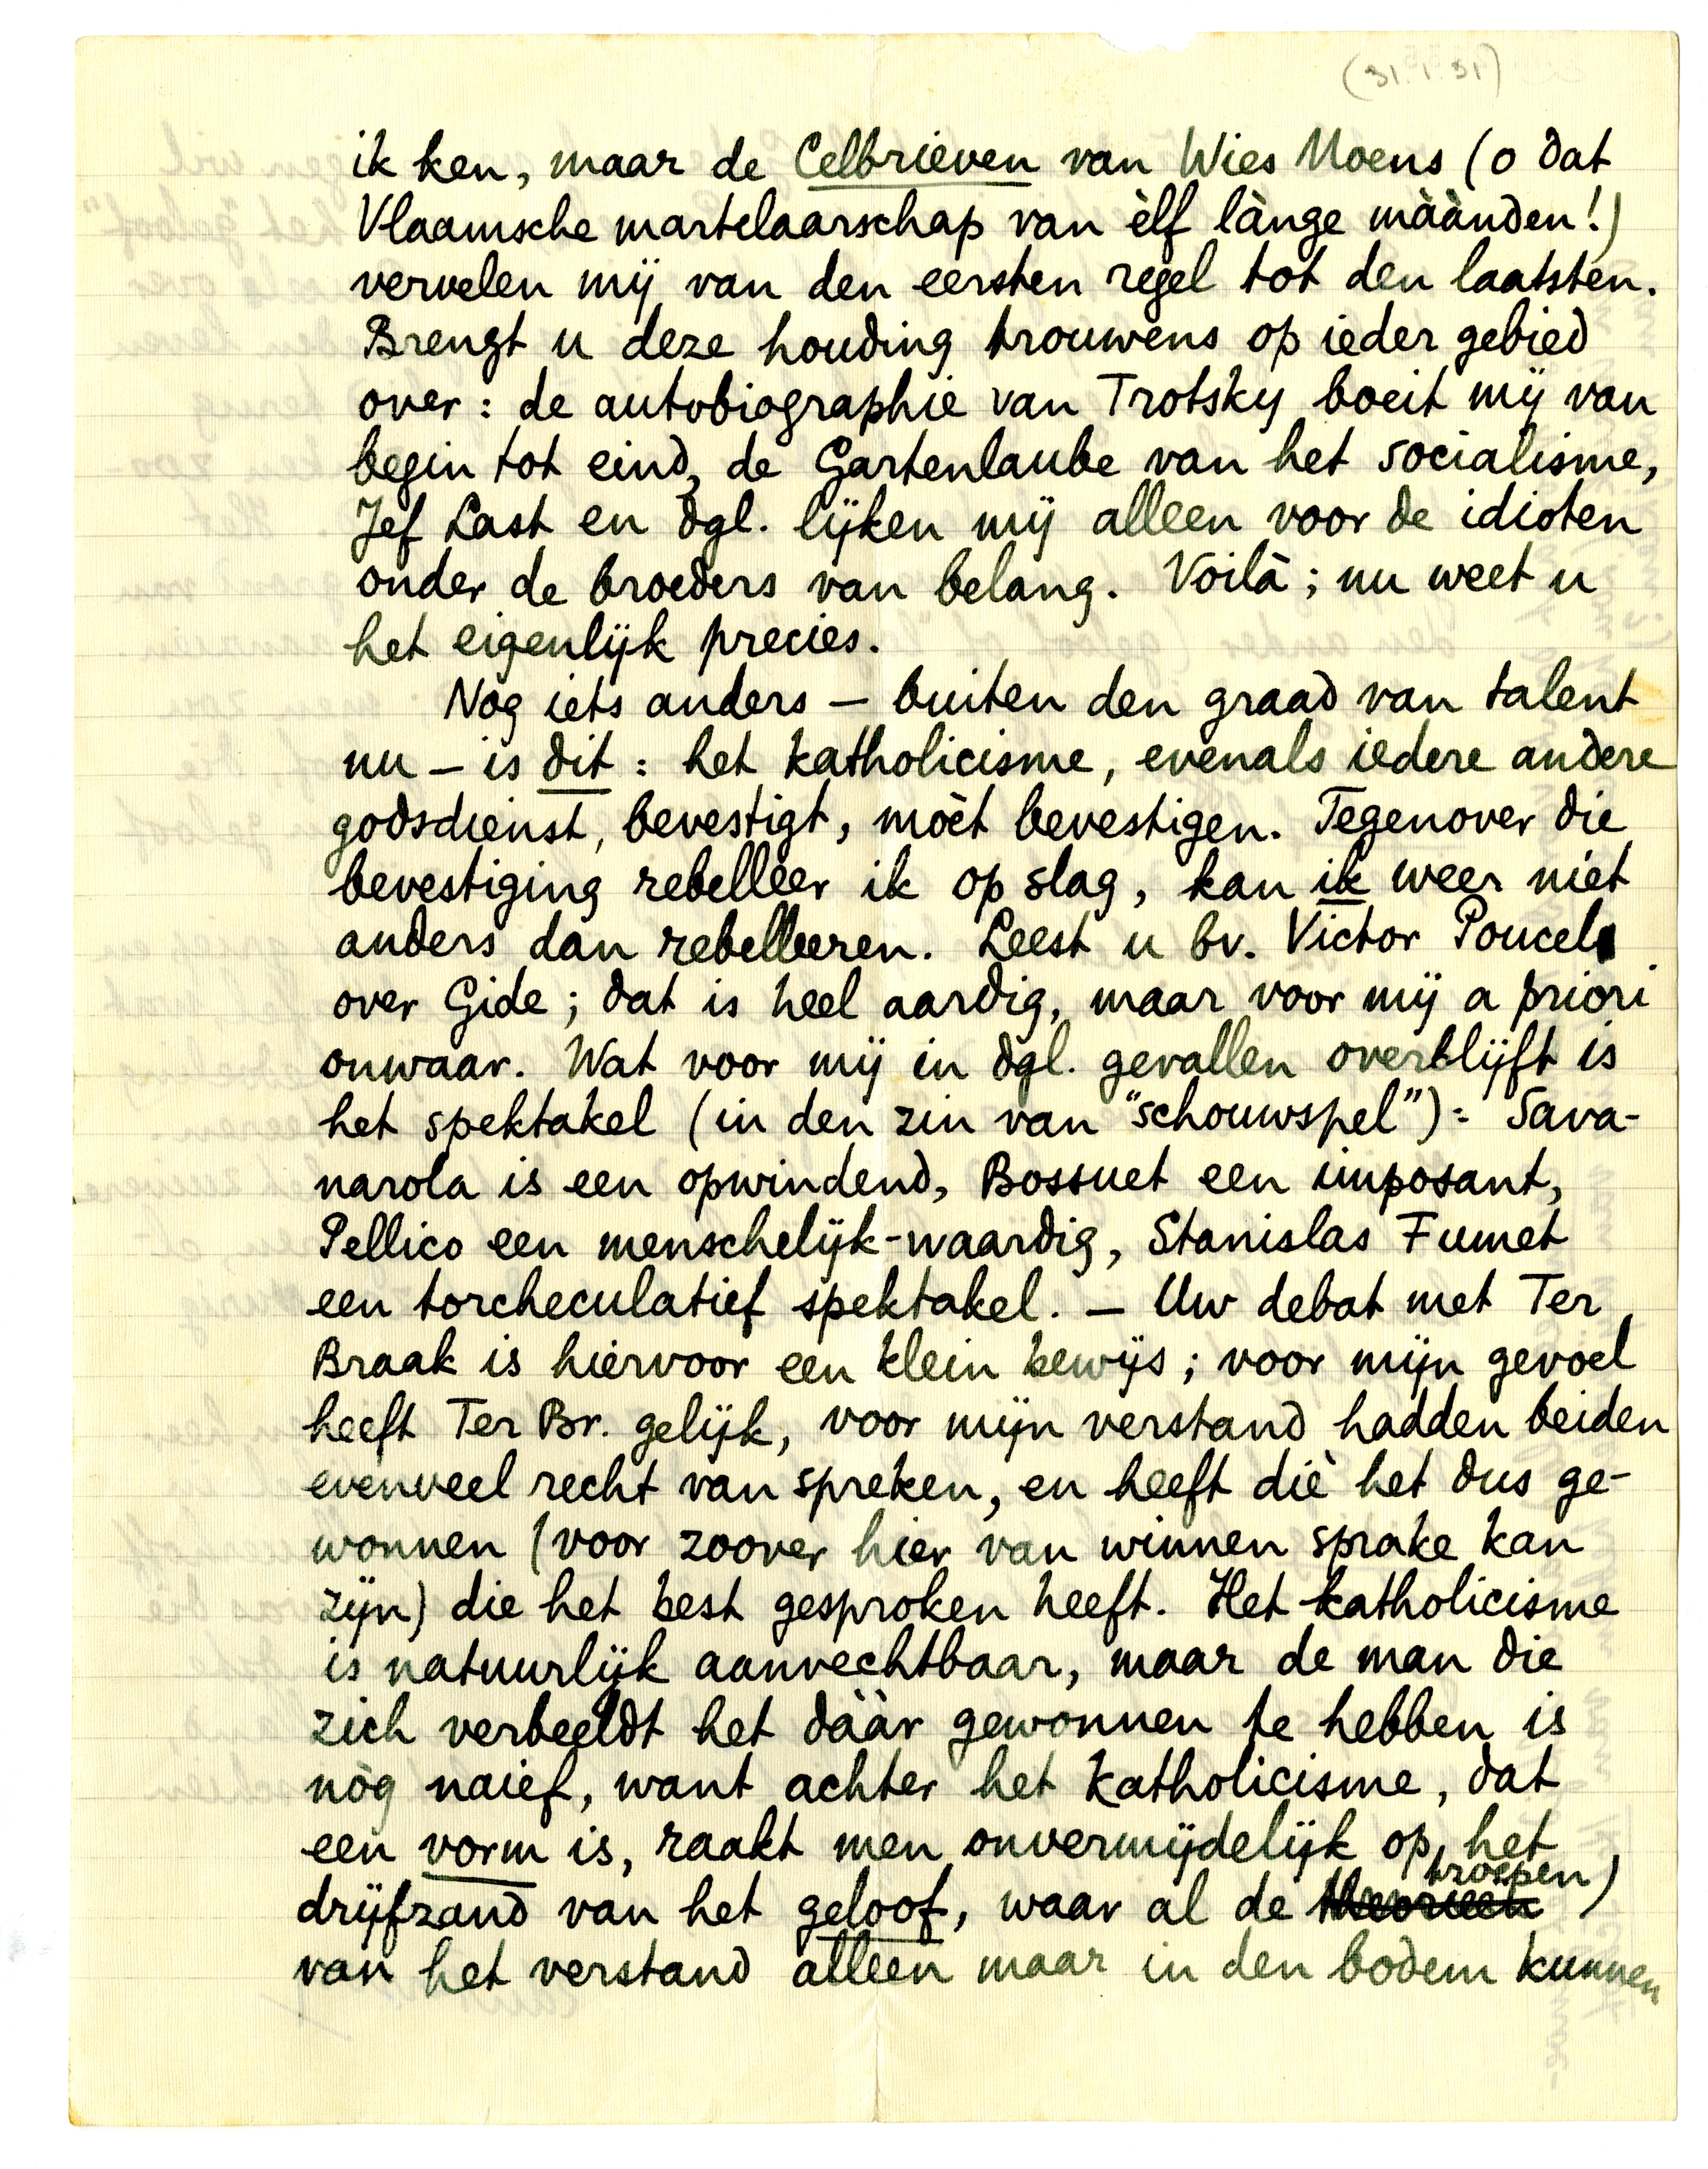 (31.1.31)
ik ken, maar de Celbrieven van Wies Moens (o dat
Vlaamsche martelaarschap van èlf lànge màànden!)
vervelen mij van den eersten regel tot den laatsten.
Brengt u deze houding trouwens op ieder gebied
over: de autobiographie van Trotsky boeit mij van
begin tot eind, de Gartenlaube van het socialisme,
Jef Last en dgl. lijken mij alleen voor de idioten
onder de broeders van belang. Voilà; nu weet u
het eigenlijk precies.
Nog iets anders — buiten den graad van talent
nu — is dit: het katholicisme, evenals iedere andere
godsdienst, bevestigt, mòet bevestigen. Tegenover die
bevestiging rebelleer ik op slag, kan ik weer niet
anders dan rebelleeren. Leest u bv. Victor Poucel
over Gide; dat is heel aardig, maar voor mij a priori
onwaar. Wat voor mij in dgl. gevallen overblijft is
het spektakel (in den zin van "schouwspel"): Sava-
narola is een opwindend, Bossuet een imposant,
Pellico een menschelijk-waardig, Stanislas Fumet
een torcheculatief spektakel. — Uw debat met Ter
Braak is hiervoor een klein bewijs; voor mijn gevoel
heeft Ter Br. gelijk, voor mijn verstand hadden beiden
evenveel recht van spreken, en heeft diè het dus ge-
wonnen (voor zoover hier van winnen sprake kan
zijn) die het best gesproken heeft. Het katholicisme
is natuurlijk aanvechtbaar, maar de man die
zich verbeeldt het dààr gewonnen te hebben is
nòg naief, want achter het katholicisme, dat
een vorm is, raakt men onvermijdelijk op het
drijfzand van het geloof, waar al de theorieën troepen)
van het verstand alleen maar in den bodem kunnen